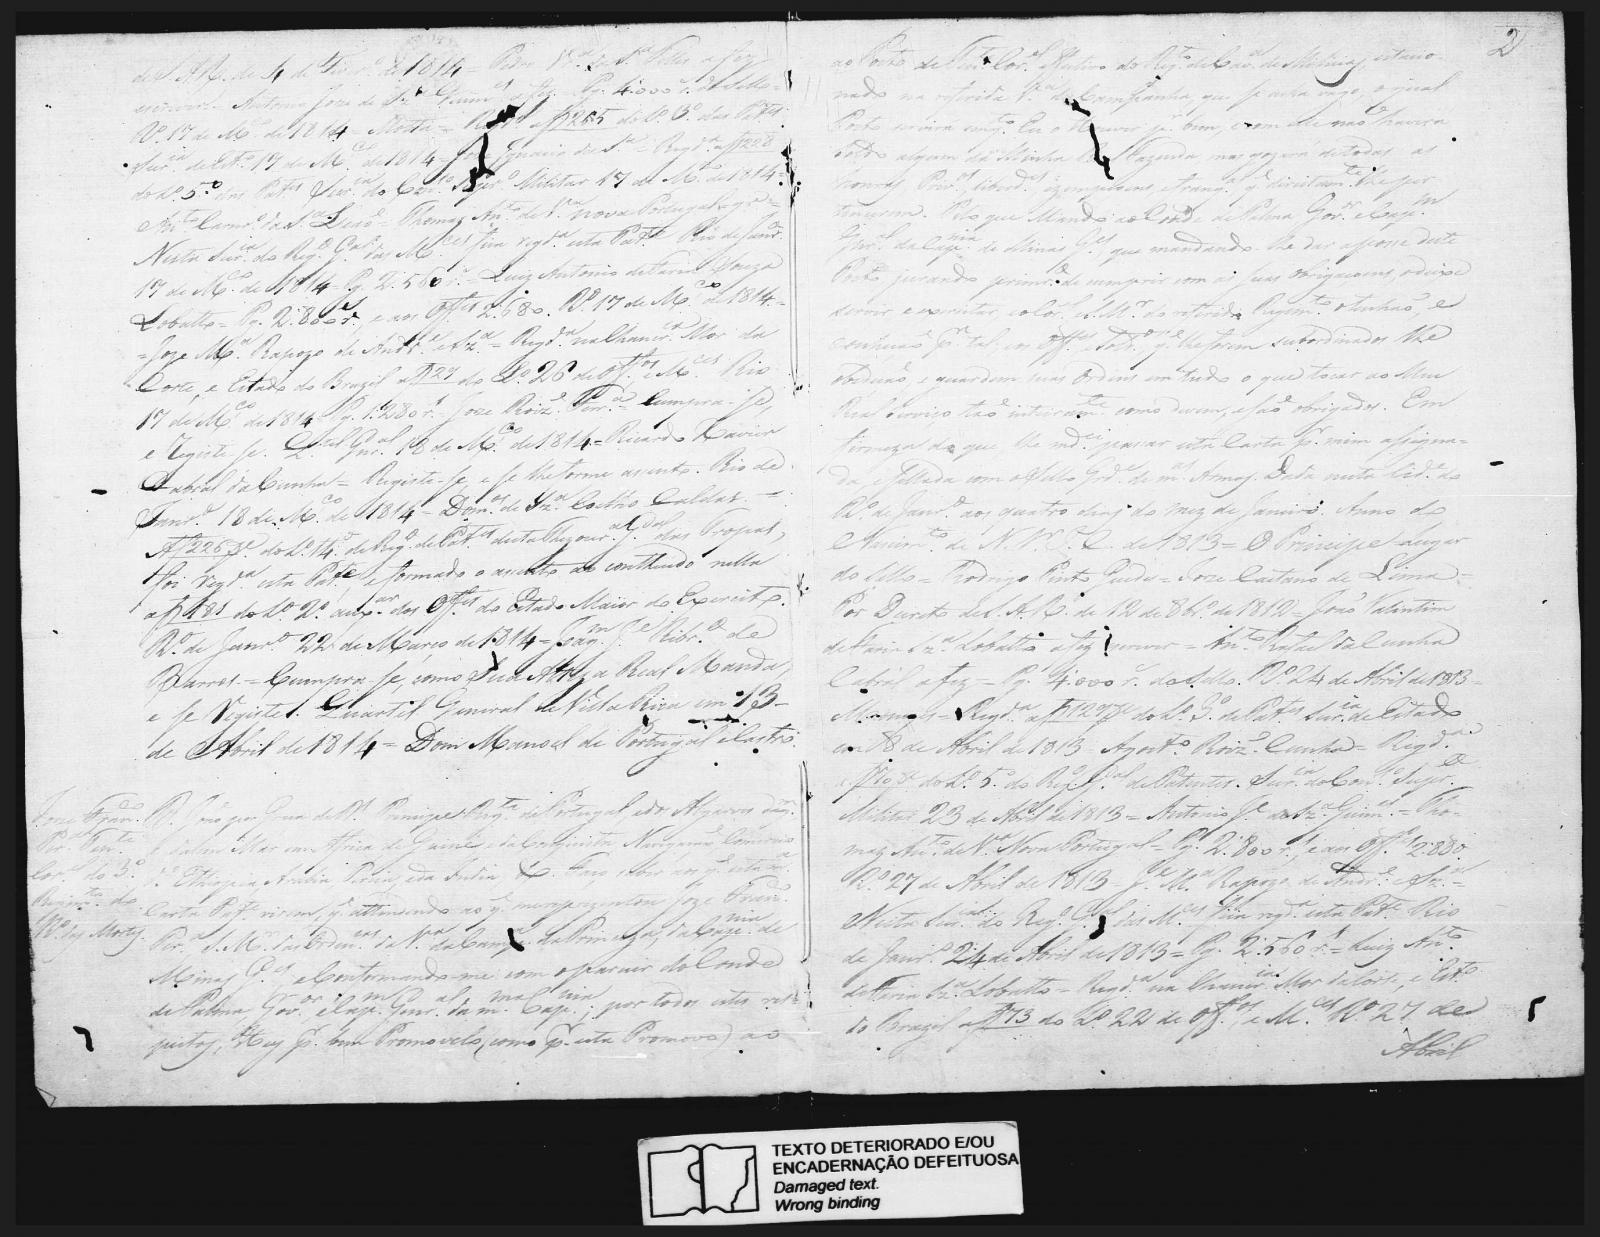 de S. A. R. de 4 de Fever.º de 1814 = Pedro
escrever = Antonio Joze de Sz.ª Guim.es a fez = Pg. 4.000 r.s de Sello
R.º 17 de M.ço de 1814 = Motta = Reg.da a f 265 do L.º 3.º das Pat.es
Secr.ia de Est.º 17 de M.ço de 1814 = Ignacio da S.ª Reg.da a f 228
do L.º 5.º das Pat.es Secr.ia do Cons.º Supr.º Militar 17 de M.ço de 1814 =
Thomaz An.to de V.ª nova Portugal
Nesta Secr.ia do Reg.º G.al das M.ces fica reg.da esta Pat.te Rio de Janr.º
17 de M.ço de 1814 = Pg. 2.560 r.s = Luiz Antonio de Faria Souza
Lobatto = Pg. 2.800 r.s, e aos Off.es 2.680. R.º 17 de M.ço de 1814 =
= Joze M.ª Rapozo de Andr.e e Sz.ª = Reg.da na Chanc.ria Mor da
Corte, e Estado do Brazil a f 27 do L.º 26 de Off.os, e M.ces Rio
17 de M.ço de 1814 Pg. 1.280 r.s Joze Roiz.' Per.ª = Cumpra-se,
e registe-se. Q.tel Gen.al 18 de M.ço de 1814 = Ricardo Xavier
Cabral da Cunha = Registe-se, e se lhe forme assento. Rio de
Janr.º 18 de M.ço de 1814 = Dom.os de Sz.ª Coelho Caldas. =
A f 225 do L.º 14.º de Reg.º de Pat.es desta Thezour.ª G.al das Tropas,
foi reg.da esta Pat.te e formado o assento ao conttheudo nella
a f 181 do L.º 2.º aux.ar dos Off.es do Estado Maior do Exercito.
R.º de Janr.º 22 de Março de 1814 = Joaq.m J.e Ribr.º de
Barros. = Cumpra-se, como Sua Alteza Real Manda,
e se Registe. Quartel General de Villa Rica em 13
de Abril de 1814 = Dom Manoel de Portugal e Castro.
Joze Fran.co
Per.ª Ten.te
Cor.el do 3.º
Regim.to do
R.º das Mortes
D. João por Graça de D.s Principe Reg.te de Portugal e dos Algarves daq.m
e dalem Mar em Africa de Guiné e da Conquista Navegação Comercio
d.ª Ethiopia, Arabia, Percia, e da India, &.ª Faço saber aos q.' esta m.ª
Carta Pat.e virem, q.' attendendo ao q.' me reprezentou Joze Fran.co
Per.ª S. M.or das Orden.as da V.ª da Camp.ª da Princeza, da Cap.nia de
Minas G.es, e Conformando-me com o parecer do Conde
de Palma, Gov.or e Cap.m Gen.al da m.ma Cap.nia, por todos estes res-
peitos; Hey p.r bem Promovelo, (como p.r esta Promovo) ao
2
ao Posto de Ten.te Cor.el Aggregado do Reg.to de Cav.ª de Milicias, estacio-
nado na referida V.ª da Campanha, que se acha vago, o qual
Posto servirá em q.to Eu o houver p.r bem, e com elle não haverá
Soldo algum da Minha Real Fazenda mas gozará de todas as
honras, Priv.os, liberd.es, izempçoens, e franq.as q.' direitam.te lhe per-
tencerem. Pelo que Mando ao Conde de Palma Gov.or e Cap.m
Gen.al da Cap.nia de Minas G.es, que mandando-lhe dar a posse deste
Posto, jurando primr.º de cumprir com as suas obrigaçoens, o deixe
servir e exercitar, e o Cor.el, e S. M.or do referido Regim.to o tenhão, e
conheção p.r tal, e os Off.es, e Sold.os q.' lhe forem subordinados lhe
obedeção, e guardem suas Ordens em tudo o que tocar ao Meu
Real Serviço tão inteiram.te como devem, e são obrigados. Em
firmeza do que, lhe md.ei passar esta Carta p.r mim assigna-
da, e Sellada com o Sello Gr.de de m.as Armas. Dada nesta Cid.e do
R.º de Janr.º aos quatro dias do mez de Janeiro. Anno do
Nascim.to de N. S. J. C. de 1813 = O Principe =
Rodrigo Pinto Guedes = Joze Caetano de Lima =
Por Decreto de S. A. R. de 12 de 8br.º de 1812 = João Valentim
de Faria Sz.ª Lobatto a fez escrever = An.to Rafael da Cunha
Cabral a fez = Pg. 4.000 r.s de Sello. R.º 24 de Abril de 1813 =
Marques = Reg.da a f 129 do L.º 3.º de Pat.es Secr.ia de Estado
em 18 de Abril de 1813 = Agost.º Roiz.' Cunha = Reg.da
a f do L.º 5.º do Reg.º G.al de Patentes. Secr.ia do Con.º Supr.º
Militar 23 de Abril de 1813 = Antonio J.e de Sz.ª Guim.es = Tho-
maz An.to de V.ª Nova Portugal = Pg. 2.800 r.s, e aos Off.es 2.880.
R.º 27 de Abril de 1813 = J.e M.ª Rapozo de Andr.e e Sz.ª =
Nesta Secr.ia do Reg.º G.al das M.ces fica reg.da esta Pat.e Rio
de Janr.º 24 de Abril de 1813 = Pg. 2.560 r.s = Luiz An.to
de Faria Sz.ª Lobatto = Reg.da na Chanc.ria Mor da Corte, e Est.do
do Brazil a f 73 do L.º 22 de Off.os, e M.ces R.º 27 de
Abril
TEXTO DETERIORADO E/OU
ENCADERNAÇÃO DEFEITUOSA
Damaged text.
Wrong binding